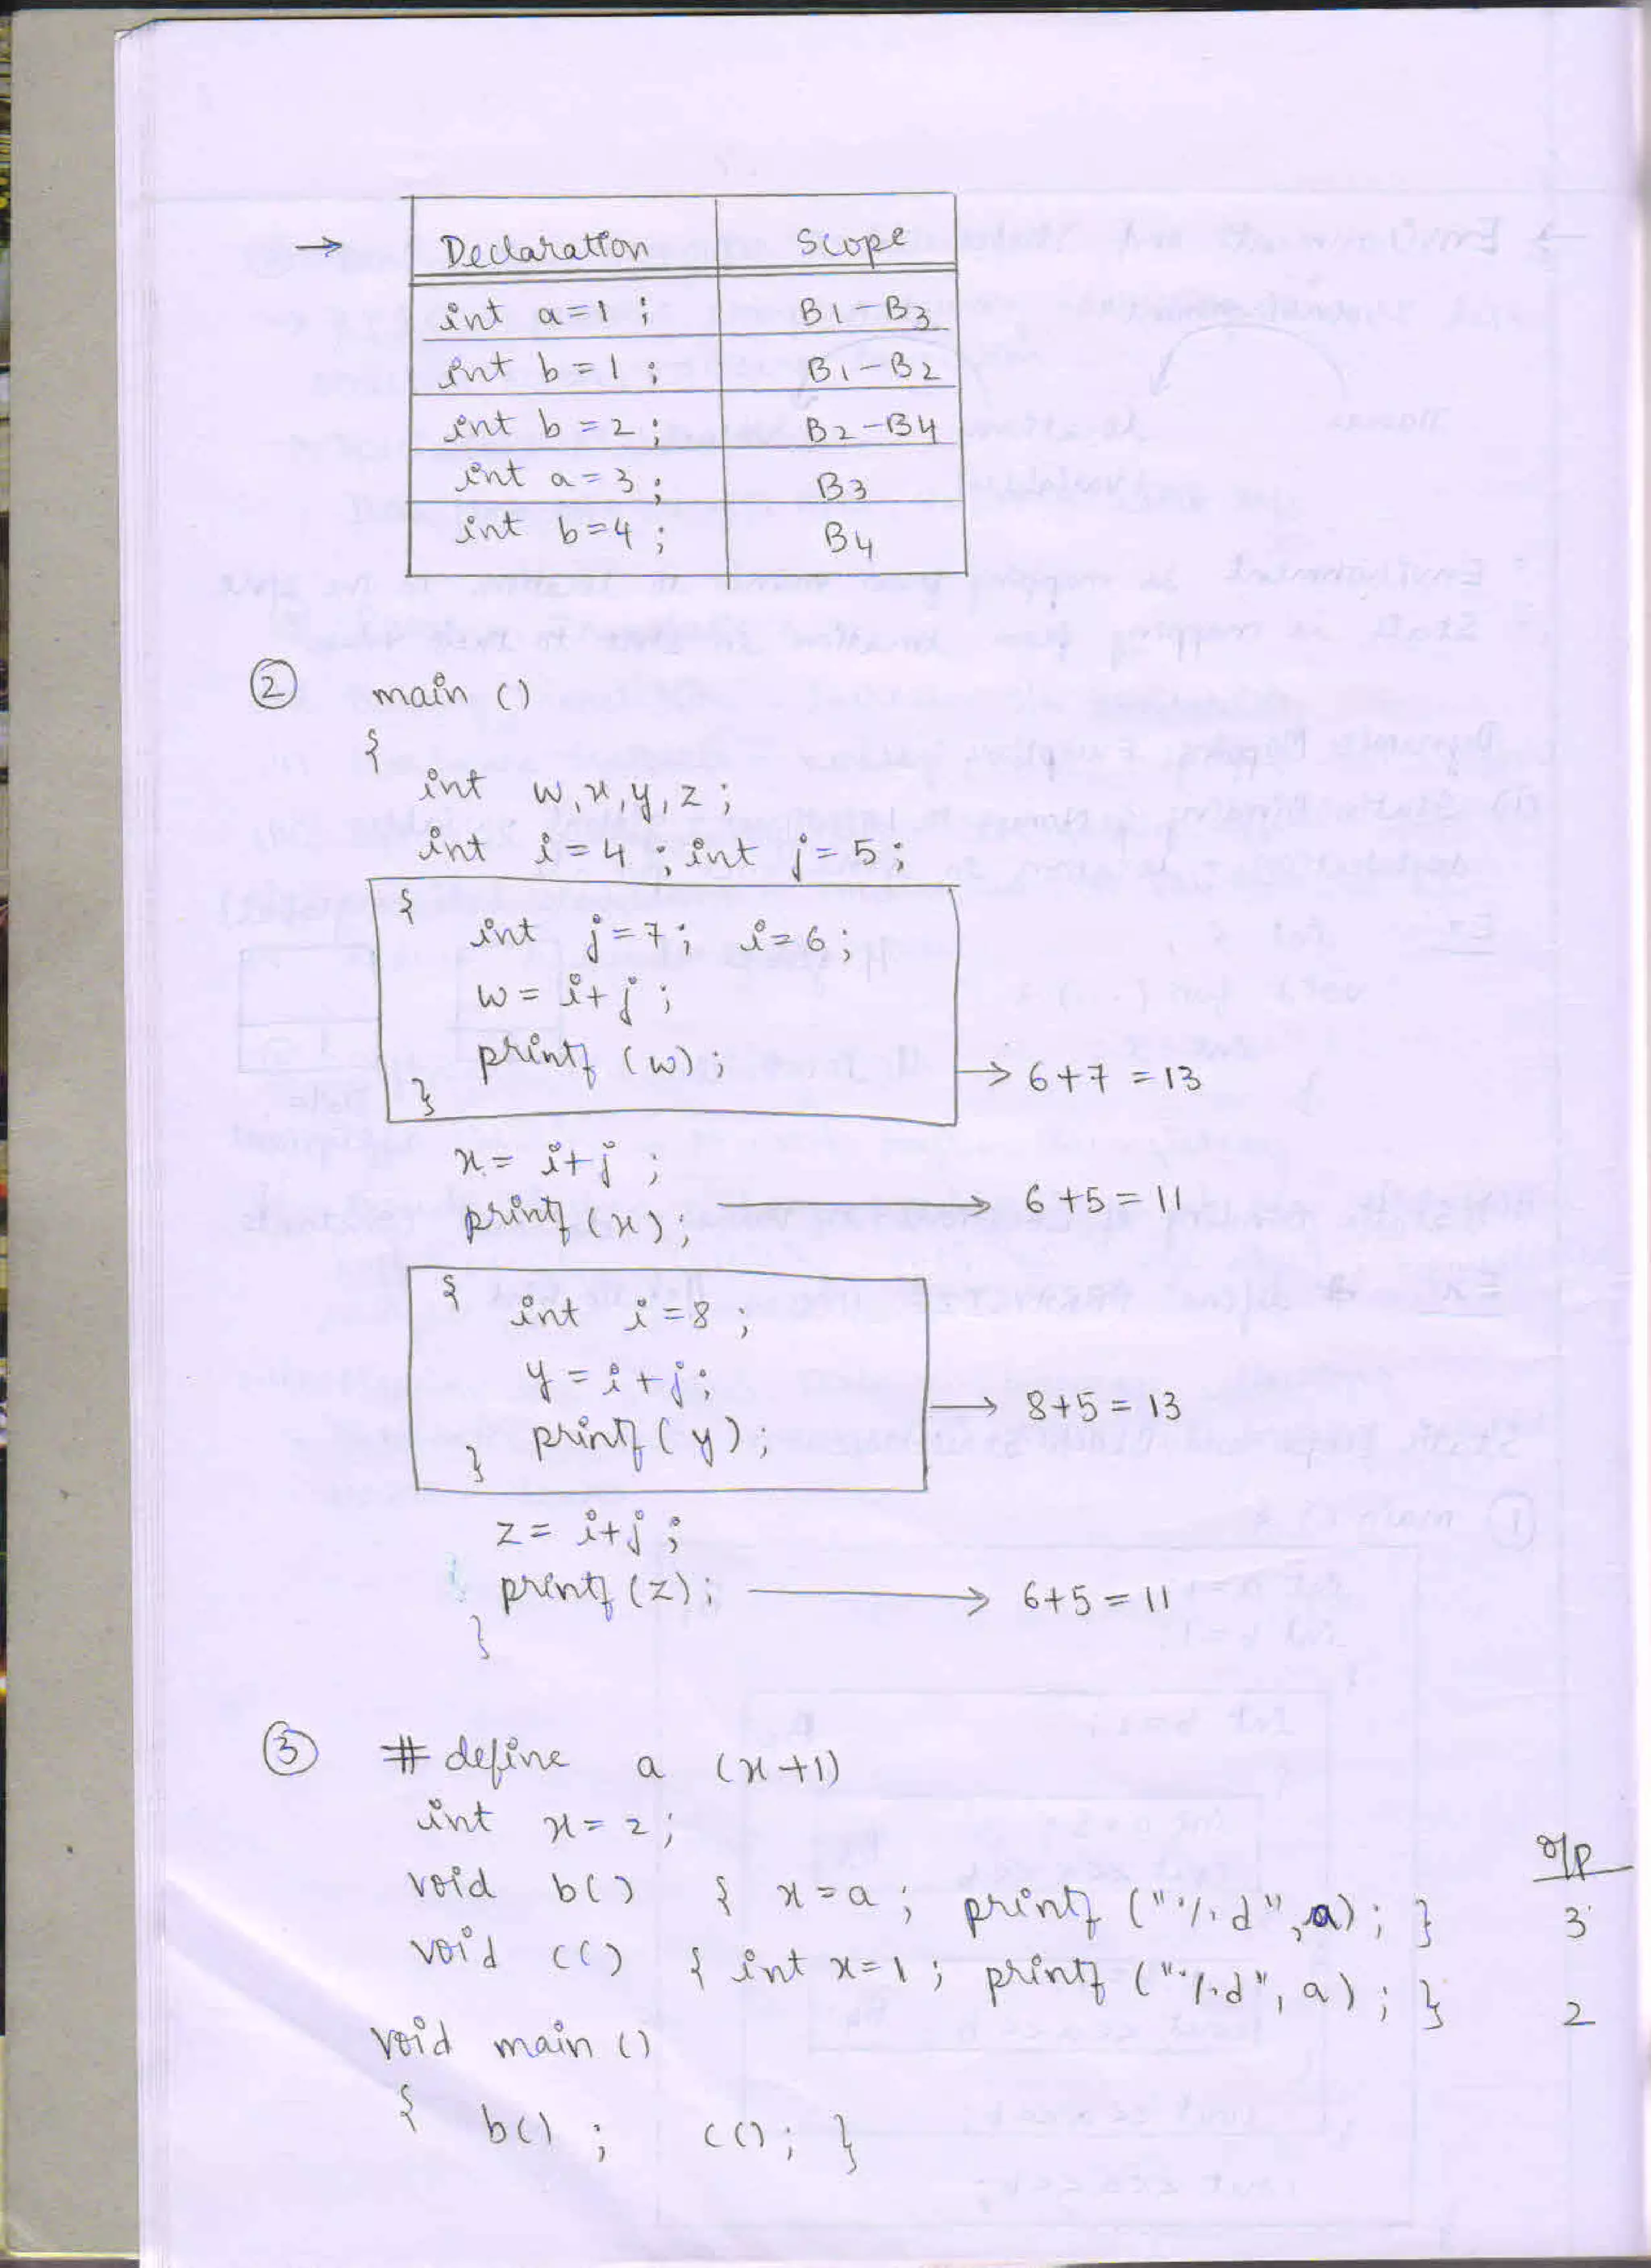 → Declaration Scope
int a=1 ; B1-B3
int b=1 ; B1-B2
int b=2 ; B2-B4
int a=3 ; B3
int b=4 ; B4
② main ()
{
int w,x,y,z ;
int i=4 ; int j=5 ;
{
int j=7 ; i=6 ;
w= i+j ;
printf (w) ;
} → 6+7 =13
x= i+j ;
printf(x) ; → 6+5=11
{
int i=8 ;
y=i+j;
printf(y) ; → 8+5=13
}
z= i+j ;
printf(z); → 6+5=11
}
③ # define a (x+1)
int x=2 ;
o/p
void b() { x=a ; printf ("%d",a) ; } 3
void c() { int x=1 ; printf ("%d", a) ; } 2
void main ()
{ b() ; c() ; }